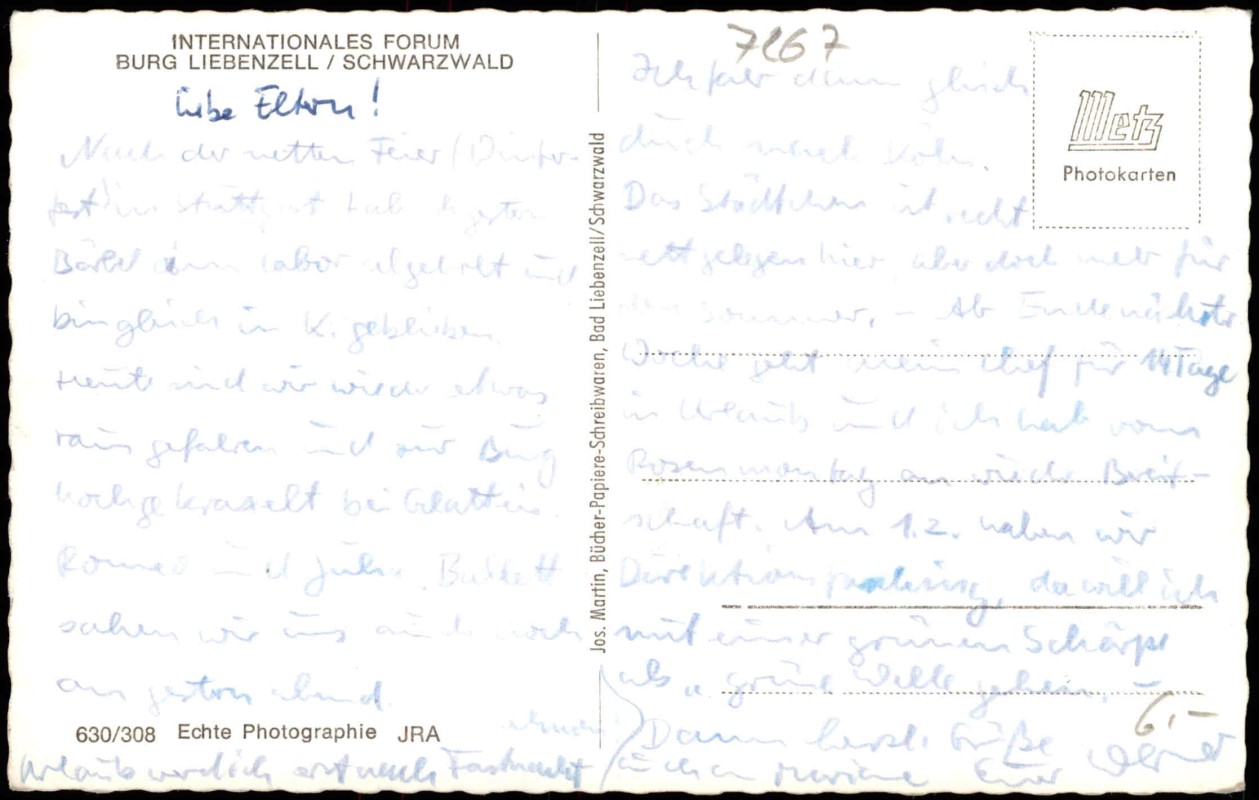 INTERNATIONALES FORUM
BURG LIEBENZELL / SCHWARZWALD
Liebe Eltern!
Nach der netten Feier
in Stuttgart hab ich gestern
Bärbel vom Labor abgeholt und
bin gleich in K. geblieben.
Heute sind wir wieder etwas
raus gefahren und zur Burg
hochgekraxelt bei Glatteis.
Romeo und Julia Ballett
sahen wir uns auch noch
an gestern abend.
630/308 Echte Photographie JRA
Urlaub werd ich erst nach Fastnacht
Jos. Martin, Bücher-Papiere-Schreibwaren, Bad Liebenzell/Schwarzwald
7267
Metz
Photokarten
Ich fahr dann gleich
durch nach Köln.
Das Städtchen ist recht
nett gelegen hier, aber doch mehr für
den Sommer. - Ab Ende nächster
Woche geht mein Chef für 14 Tage
in Urlaub und ich hab vom
Rosenmontag an wieder Bereit-
schaft. Am 1.2. haben wir
Direktions, da will ich
mit einer grünen Schärpe
als "grüne Welle gehen. -
6,-
Dann herzl. Grüße
Euer Werner